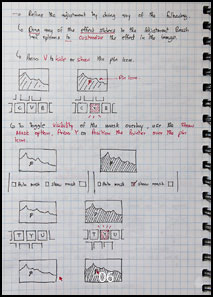 → Refine the adjustment by doing any of the following.
↳ Drag any of the effect sliders in the Adjustment Brush
tool options to customize the effect in the image.
↳ Press V to hide or show the pin icon.
Pin icon.
C V B
C V B
↳ To Toggle visibility of the mask overlay, use the Show
Mask option, Press Y or Position the pointer over the pin
icon.
Auto mask show mask
Auto mask show mask
T Y U
T Y U
06